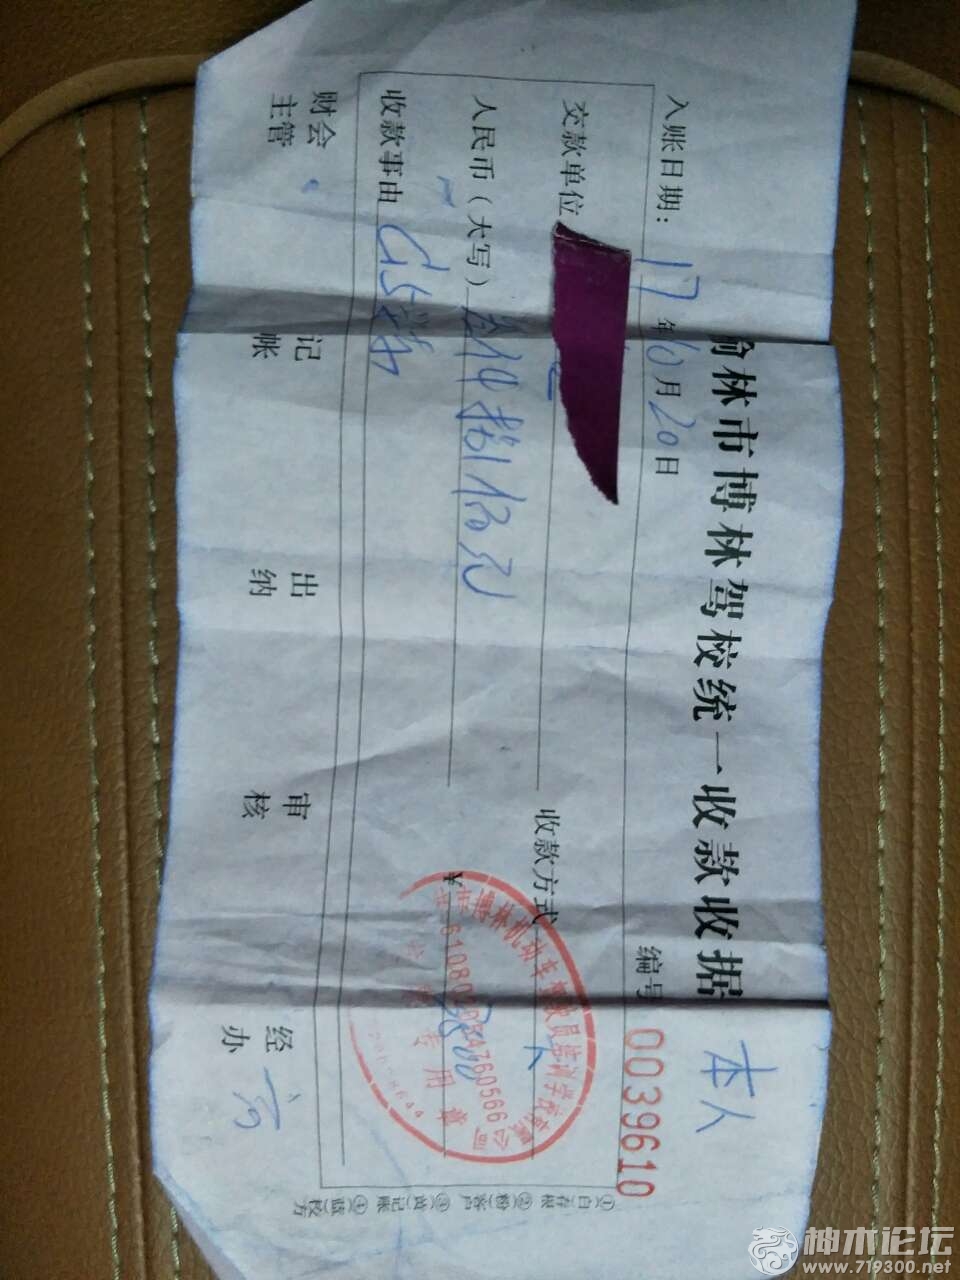 本人
榆林市博林驾校统一收款收据
编号 0039610
入账日期：17年10月20日
交款单位
收款方式
人民币（大写）叁仟捌佰元
¥ 3800
收款事由 C1
财会主管
记帐
出纳
审核
经办
①白存根 ②粉客户 ③黄记账 ④蓝校方
博林机动车驾驶员培训学校有限公司
专用章
神木论坛
www.719300.net